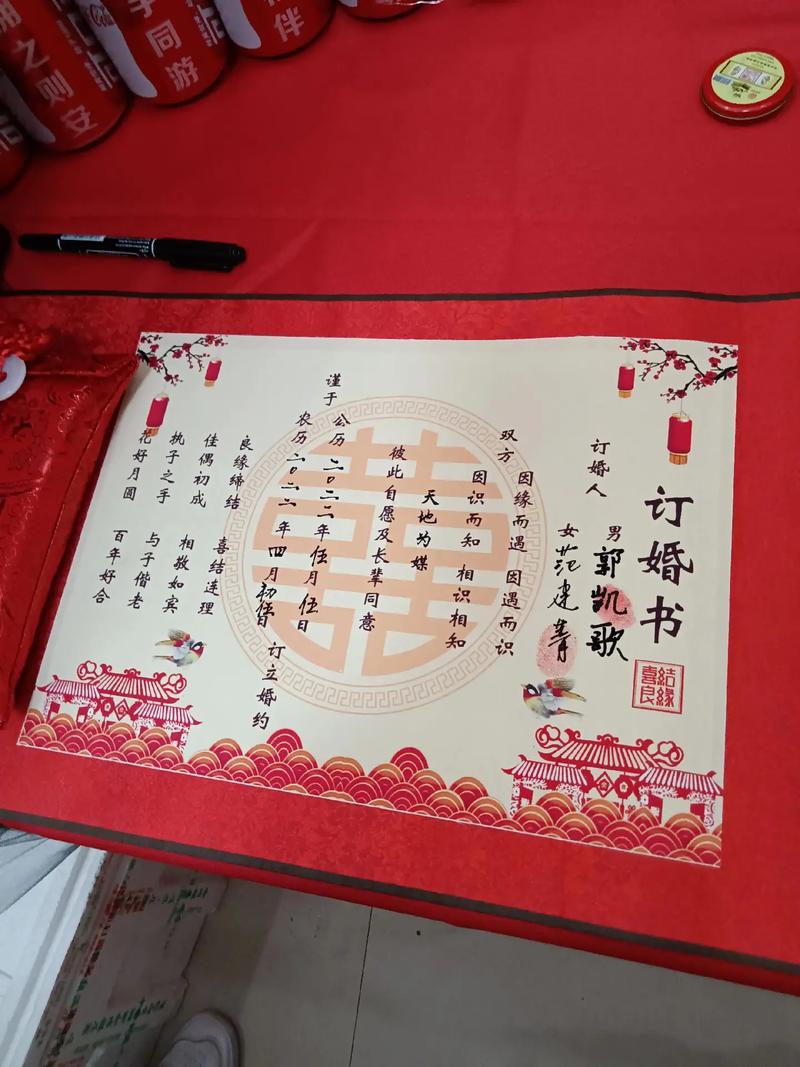 订婚书
订婚人
男 郭凯歌
女 范建菁
双方 因缘而遇 因遇而识
因识而知 相识相知
天地为媒
彼此自愿及长辈同意
谨于公历二〇二二年伍月伍日
农历二〇二二年四月初伍日 订立婚约
良缘缔结 喜结连理
佳偶初成 相敬如宾
执子之手 与子偕老
花好月圆 百年好合
結緣
喜良
之则安
手同游
伴